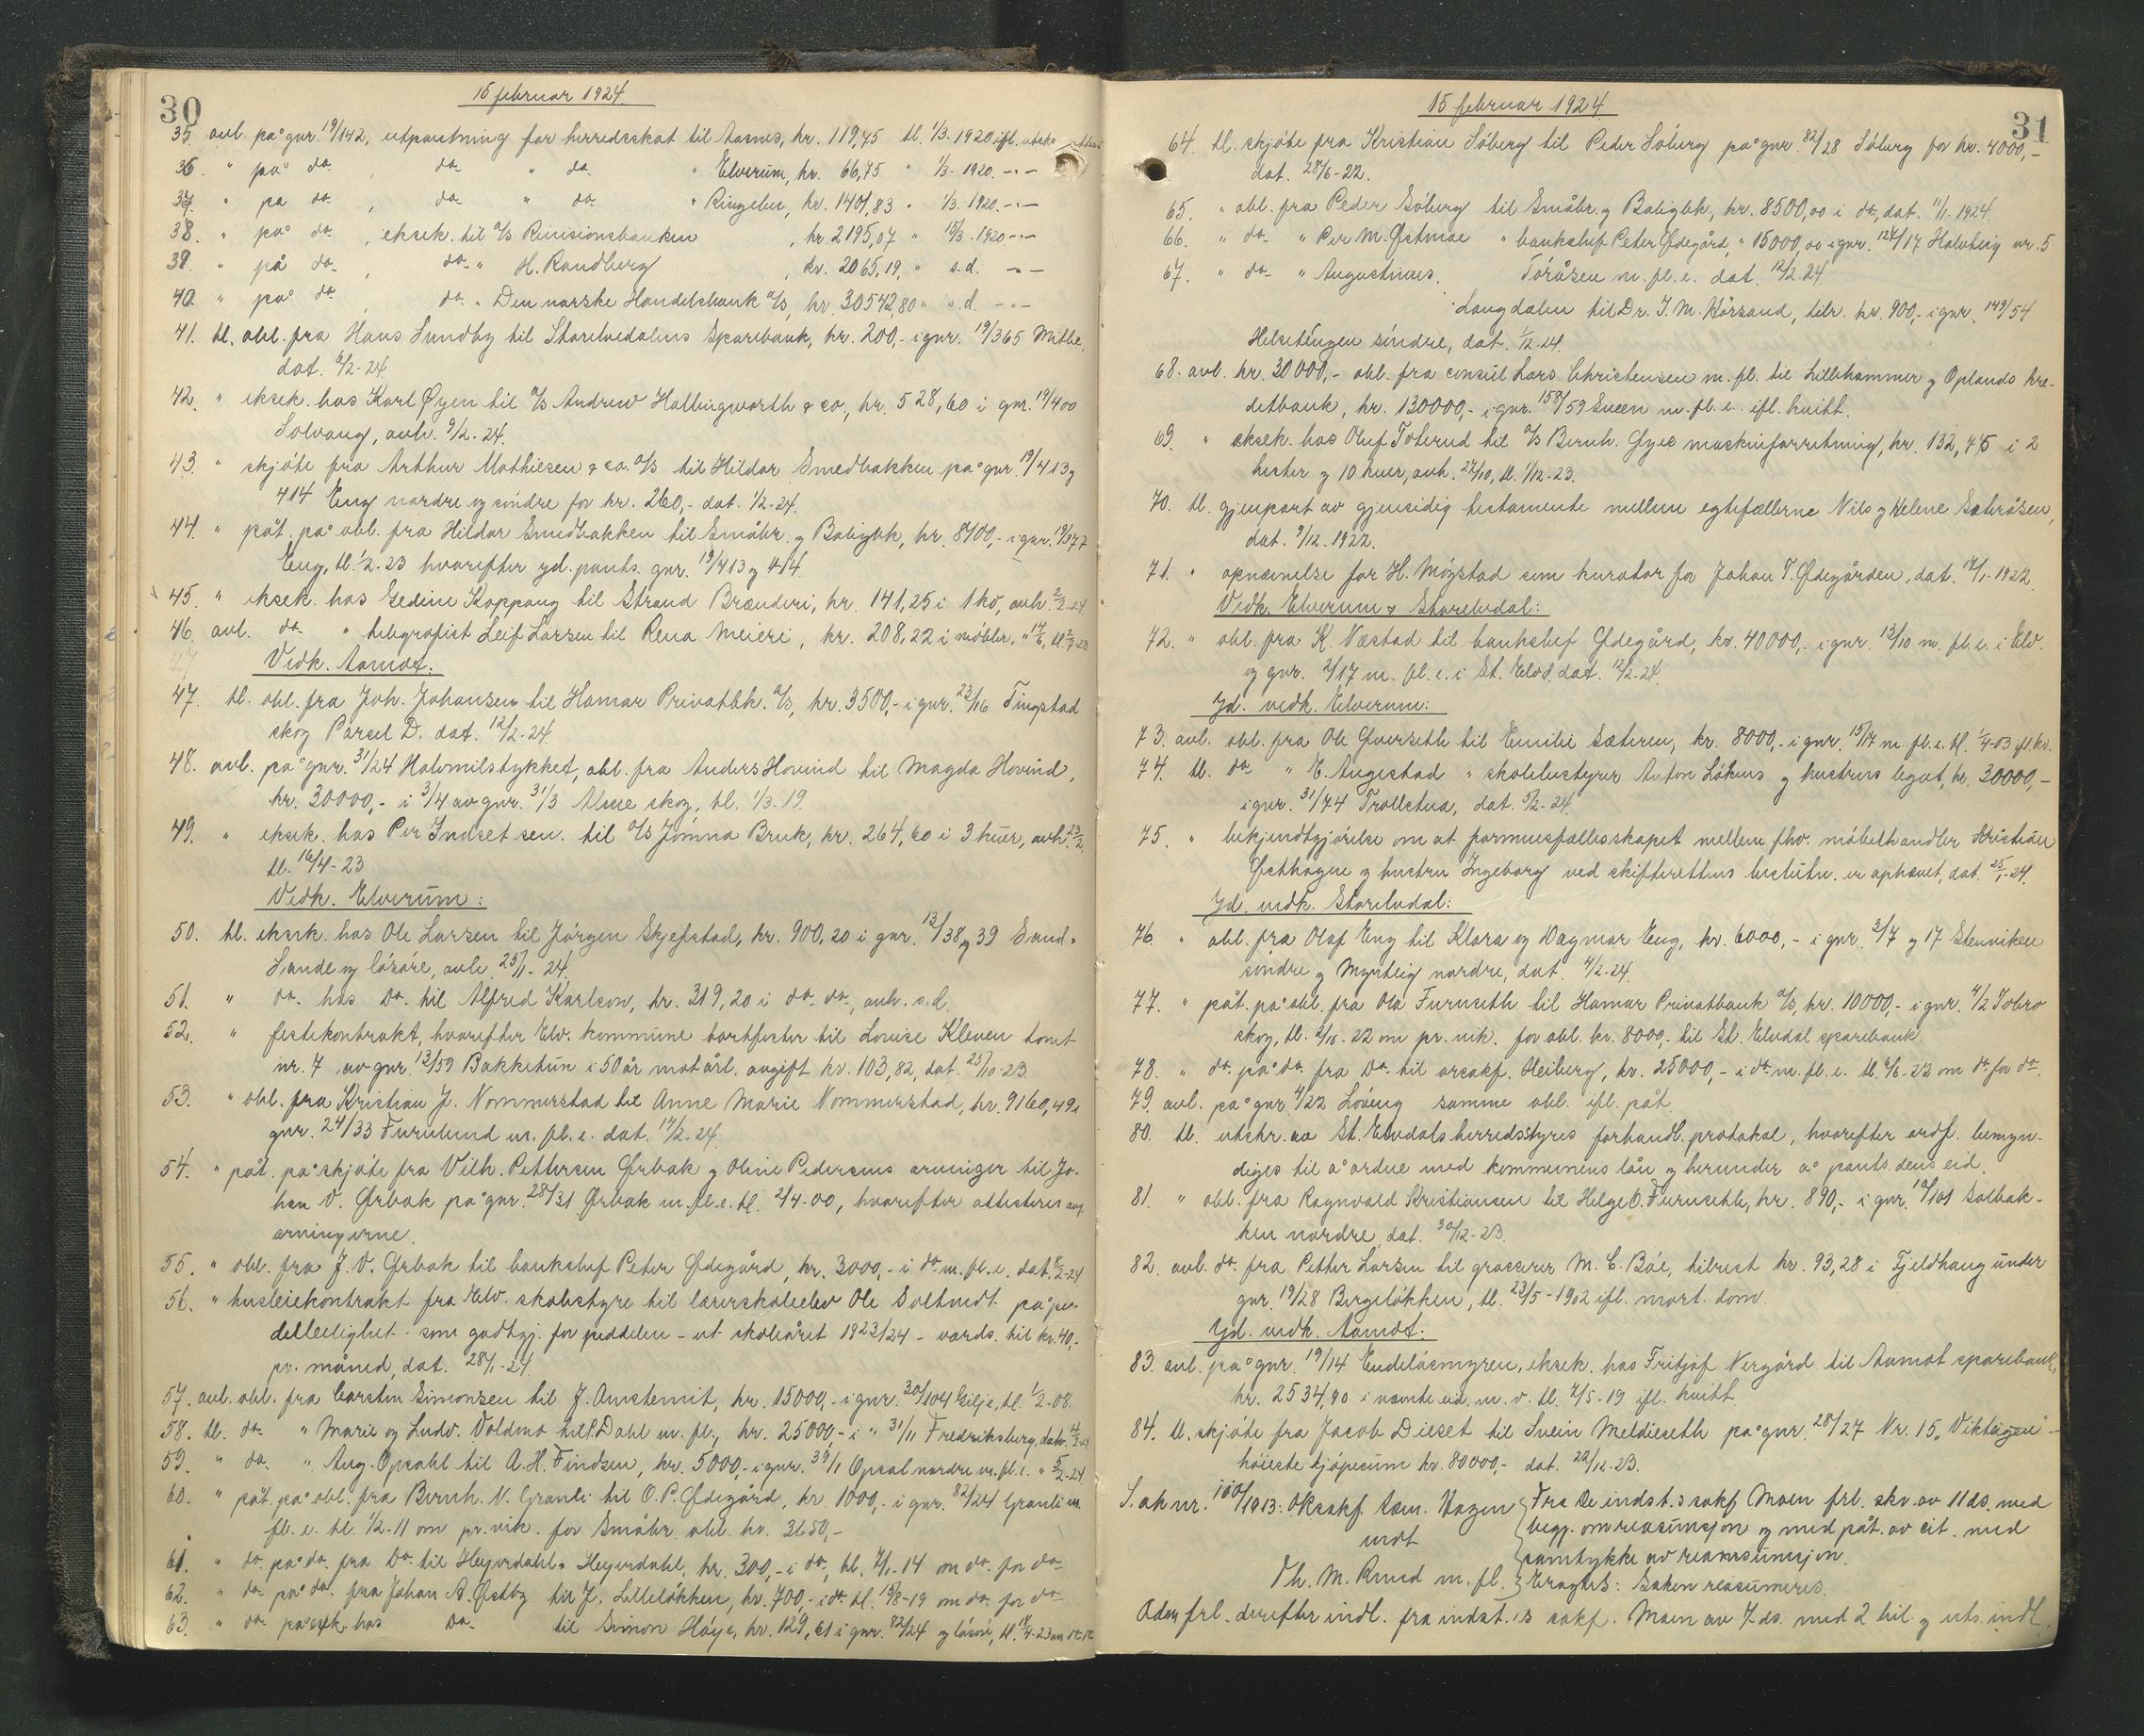 30
15 februar 1924.
35. avl. på gnr. 19/142, utpantning for herredsskat til Aasnes, hr. 119,75 tl. 1/3-1920 ifl.
36. " på do. , do. " do. " Elverum, hr. 66,75 " 1/3-1920. -"-
37. " på do. , do. " do. " Ringebu, hr. 1401,83 " 1/3-1920. -"-
38. " på do. , eksek. til A/S Revisionsbanken , hr. 2195,07 " 15/3-1920 -"-
39. " på do. , do. " H. Randberg , kr. 2065,19, " s.d. -"-
40. " på do. , do. " Den norske Handelsbank A/S, hr. 30542,80 " s.d. -"-
41. tl. obl. fra Hans Sundby til Storelvedalens Sparebank, hr. 200,- i gnr. 19/365
dat. 2/2-24
42. " eksek. hos Karl Øyen til A/S Andrew Hallingworth & co., hr. 528,60 i gnr. 19/400
Solvang, avh. 9/2-24.
43. " skjøte fra Arthur Mathiesen & co. A/S til Hildar Smedbakken på gnr. 19/413 og
414 Eng nordre og søndre for hr. 260,- dat. 1/2-24.
44. " påt. på obl. fra Hildar Smedbakken til Småbr. og Boligbk, hr. 8700,- i gnr. 19/377
Eng, tl. 1/2-23 hvorefter yd. pants. gnr. 19/413 og 414.
45. " eksek. hos Gedine Koppang til Strand Brænderi, hr. 141,25 i 1 ko, avh. 2/2-24
46. avl. do. " telegrafist Leif Larsen til Rena Meieri, kr. 208,22 i møbler,
Vedk. Aamot:
47. tl. obl. fra Joh. Johansen til Hamar Privatbk. A/S, hr. 3500,- i gnr. 23/16 Tingstad
skog Parsel D. dat. 12/2-24.
48. avl. på gnr. 31/24 Halvmilstykket, obl. fra Anders Hovind til Magda Hovind,
hr. 30000,- i 3/4 av gnr. 31/3 Alme skog, tl. 1/3-19.
49. " eksek. hos Per Indset sen. til A/S Jømna Bruk, hr. 264,60 i 3 kuer, avh. 23/2
tl. 16/4-23
Vedk. Elverum:
50. tl. eksek. hos Ole Larsen til Jørgen Skjefstad, hr. 900,20 i gnr. 13/38 og 39 Sand-
Lunde og løsøre, avh. 25/1-24.
51. " do. hos do. til Alfred Karlson, hr. 319,20 i do. do., avh. s.d.
52. " festekontrakt, hvorefter Elv. kommune bortfester til Lovise Kleven tomt
nr. 7 av gnr. 13/59 Bakketun i 50 år mot årl. avgift kr. 103,82, dat. 25/10-23
53. " obl. fra Kristian J. Nommerstad til Anne Marie Nommerstad, hr. 9160,49 i
gnr. 24/33 Furulund m. fl. e. dat. 14/2-24
54. " påt. på skjøte fra Vilh. Pettersen Ørbak og Oline Pedersens arvinger til Jo-
han V. Ørbak på gnr. 28/31 Ørbak m. fl. e. tl. 2/4-00, hvorefter attesteres ang.
arvingerne.
55. " obl. fra J. V. Ørbak til bankchef Peter Ødegård, hr. 3000,- i do. m. fl. e. dat. 8/2-24
56. " husleiekontrakt fra Elv. skolestyre til lærerskoleelev Ole Soltvedt på pe-
delleilighet - som godtgj. for pedellen - ut skoleåret 1923/24 - værds. til kr. 40,-
pr. måned, dat. 28/1-24.
57. avl. obl. fra Carsten Simonsen til J. Amstemit, hr. 15000,- i gnr. 30/104 Gilje, tl. 1/2-08.
58. tl. do. " Marie og Ludv. Voldmo til P. Dahl m. fl., hr. 25000,- i " 31/11 Fredriksberg, dat.
59. " do. " Aug. Opsahl til A. H. Findsen, hr. 5000,- i gnr. 39/1 Opsal nordre m. fl. e. " 5/2-24.
60. " påt. på obl. fra Bernh. N. Granli til O. P. Ødegård, hr. 1000,- i gnr. 82/24 Granli m.
fl. e. tl. 1/2-11 om pr. vik. for Småbr. obl. hr. 3650,-
61. " do. på do. fra do. til Heyerdahl & Heyerdahl, hr. 300,- i do., tl. 7/1-14 om do. for do.
62. " do. på do. fra Johan A. Østby til J. Lilleløkken, hr. 700,- i do. tl. 15/8-19 om do. for do.
63. " do. på eksk. hos do. til Simon Høye, hr. 129,61 i gnr. 82/24 og løsøre,
31
15 februar 1924.
64. tl. skjøte fra Kristian Søberg til Peder Søberg på gnr. 82/28 Søberg for hr. 4000,-
dat. 28/6-22.
65. " obl. fra Peder Søberg til Småbr. og Boligbk, hr. 8500,00 i do., dat. 11/1-1924.
66. " do. " Per M. Østmoe " bankchef Peter Ødegård, " 15000,00 i gnr. 124/17 Halvberg nr. 5
67. " do. " Augustinus Töråsen m. fl. e. dat. 12/2-24.
Langdalen til Dr. J. M. Hörsand, tilr. hr. 900,- i gnr. 149/54
Helsetengen søndre, dat. 1/12-24.
68. avl. hr. 30000,- obl. fra consul Lars Christensen m. fl. til Lillehammer og Oplands kre-
ditbank, hr. 130000,- i gnr. 158/59 Sveen m. fl. e. ifl. kvitt.
69. " eksek. hos Oluf Toterud til A/S Bernh. Gyes maskinforretning, hr. 132,75 i 2
hester og 10 kuer, avh. 27/10, tl. 1/12-23.
70. tl. gjenpart av gjensidig testamente mellem egtefællerne Nils og Helene Sæteråsen,
dat. 9/12-1922.
71. " opnævnelse for H. Møystad som kurator for Johan T. Ødegården, dat. 17/1-1922
Vedk. Elverum & Storelvdal:
72. " obl. fra K. Næstad til bankchef Ødegård, kr. 40000,- i gnr. 13/10 m. fl. e. i Elv.
og gnr. 2/17 m. fl. e. i St. Elvd. dat. 12/2-24.
Yd. vedk. Elverum:
73. avl. obl. fra Ole Gverseth til Emilie Sæteren, kr. 8000,- i gnr. 15/17 m. fl. e. tl. 1/4-03 ifl. kv.
74. tl. do. " E. Angestad " skolebestyrer Anton Løkens og hustrus legat, hr. 30000,-
i gnr. 31/74 Trollstua, dat. 5/2-24.
75. " bekjendtgjørelse om at formuesfællesskapet mellem fhv. møbelhandler Kristian
Østhagen og hustru Ingeborg ved skifterettens beslutn. er ophævet, dat. 25/1-24.
Yd. vedk. Storelvdal:
76. " obl. fra Olaf Eng til Klara og Dagmar Eng, hr. 6000,- i gnr. 3/7 og 17 Stenviken
søndre og Myrteig nordre, dat. 4/2-24.
77. " påt. på obl. fra Ola Furuseth til Hamar Privatbank A/S, hr. 10000,- i gnr. 4/2 Tobro
skog, tl. 2/10-22 om pr. vik. for obl. kr. 8000,- til St. Elvdal sparebank
78. " do. på do. fra do. til orsakf. Heiberg, hr. 25000,- i do. m. fl. e. tl. 6/6-22 om do. for do.
79. avl. på gnr. 4/22 Løveng samme obl. ifl. påt.
80. tl. utskr. av St. Elvdals herredsstyres forhandl. protokol, hvorefter ordf. bemyn-
diges til å ordne med kommunens lån og herunder å pants. dens eid.
81. " obl. fra Ragnvald Kristiansen til Helge O. Furuseth, hr. 890,- i gnr. 10/101 Solbak-
ken nordre, dat. 30/12-23.
82. avl. do. fra Petter Larsen til grosserer M. C. Bøe, tilrest hr. 93,28 i Fjeldhaug under
gnr. 19/28 Birgeløkken, tl. 23/5-1902 ifl. mort. dom.
Yd. vedk. Aamot:
83. avl. på gnr. 19/14 Endeløsmyren, eksek. hos Fritjof Nergård til Aamot sparebank,
hr. 2534,90 i nævnte eid. m. v. tl. 7/5-19 ifl. kvitt.
84. tl. skjøte fra Jacob Dieset til Svein Meldieseth på gnr. 28/27 Nr. 15 "Vikteigen" -
høieste kjøpesum kr. 80000,- dat. 22/12-23.
S. ak nr. 100/1913: Oksakf. Asm. Hagen { Fra de indst.s sakf Moen frl. skv. av 11 ds. med
mot begj. om reasumsjon og med påt. av cit. med
samtykke av reasumsjon.
Th. M. Ruud m. fl. } Eragtes: Saken reasumeres.
frl. derefter indl. fra indst.'s sakf. Moen av 7. ds. med 2 bil. og uts. indl.